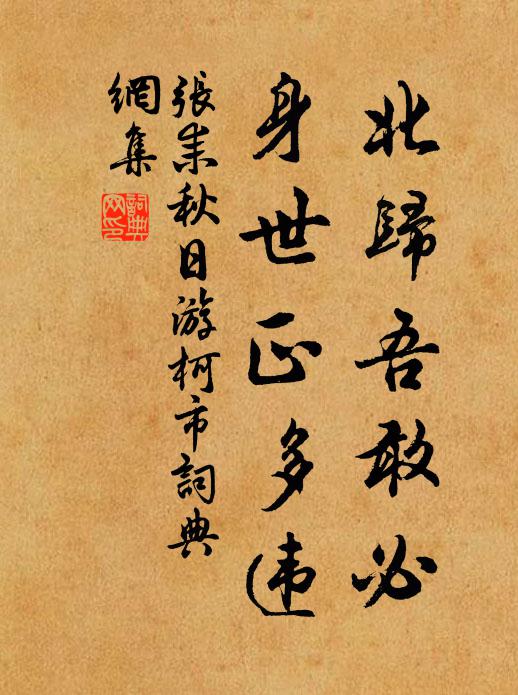 北歸吾敢必
身世正多违
張耒秋日游柯市詞典
網集
詞典
网印